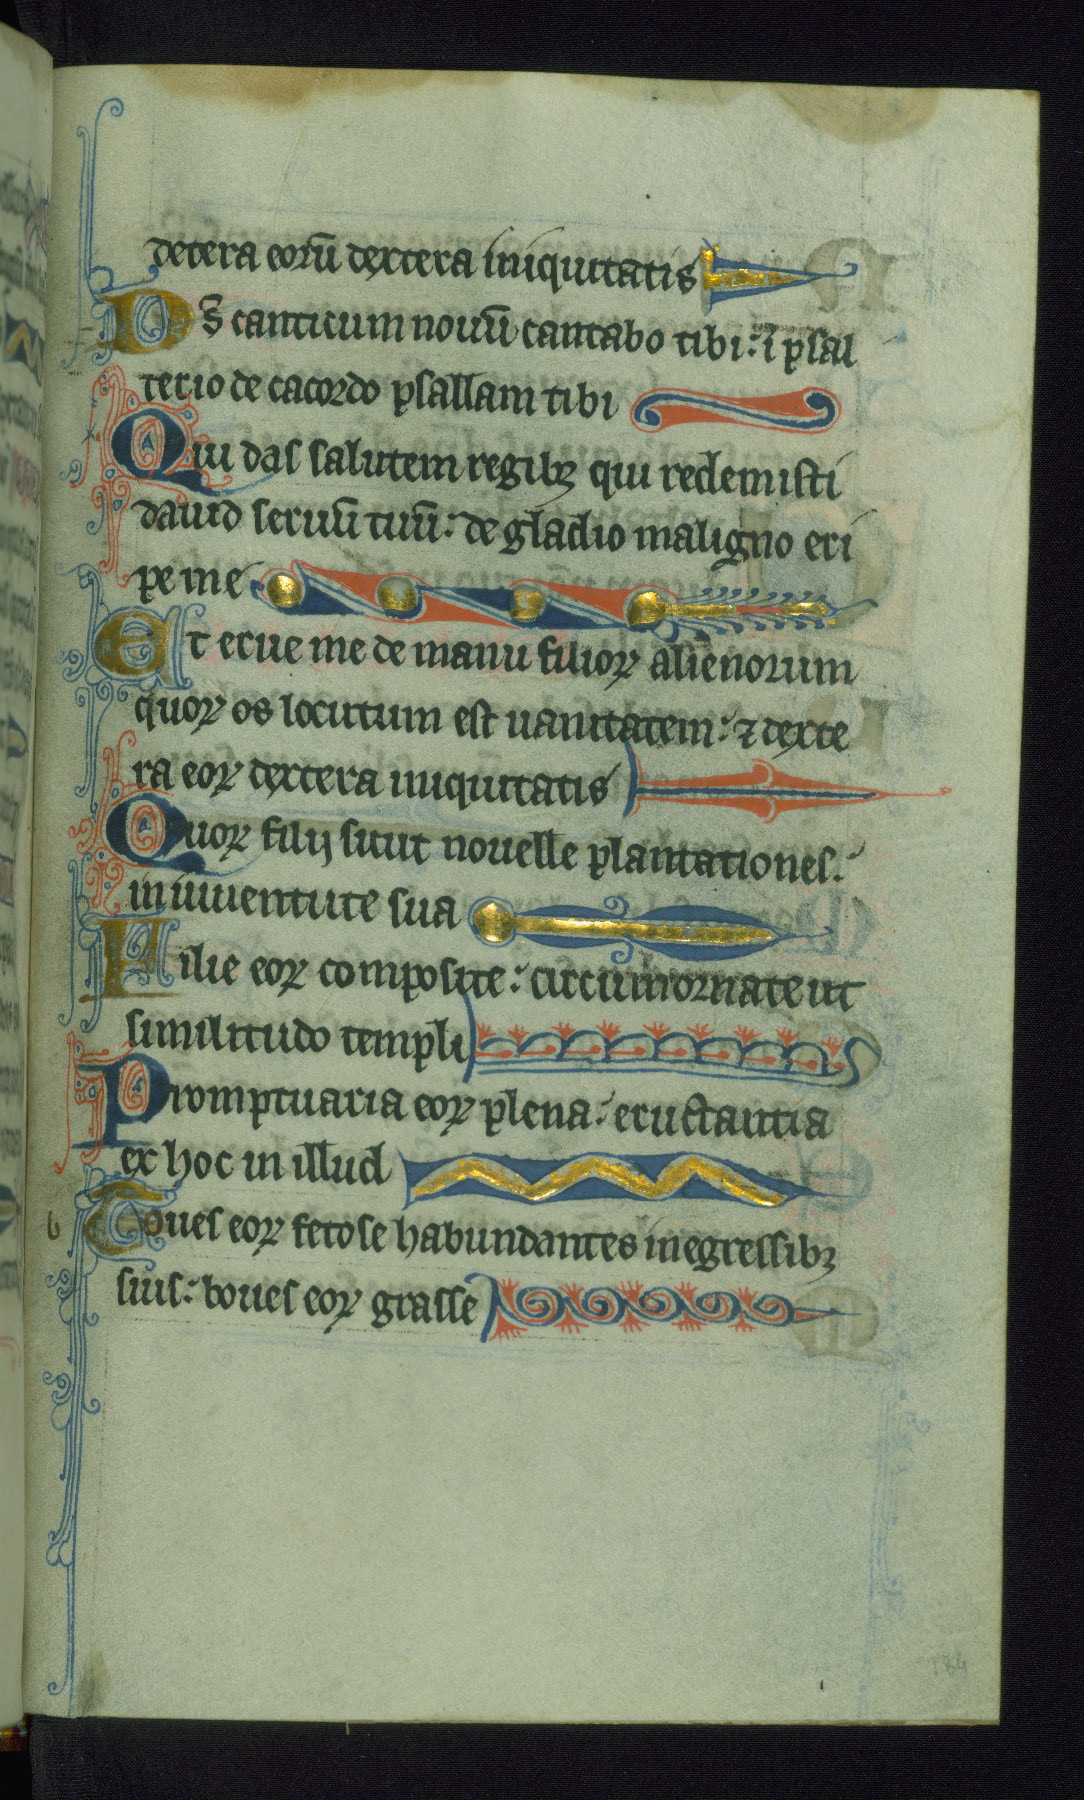 detera eorū dextera iniquitatis
Ds̄ canticum nouū cantabo tibi: ī psal
terio decacordo psallam tibi
Qui das salutem regibꝫ qui redemisti
dauid seruū tuū: de gladio maligno eri
pe me
Et erue me de manu filioꝝ alienorum
quoꝝ os locutum est uanitatem: ⁊ dexte
ra eoꝝ dextera iniquitatis
Quoꝝ filij sicut nouelle plantationes:
in iuuentute sua
Filie eoꝝ composite: circumornate ut
similitudo templi
Promptuaria eoꝝ plena: eructantia
ex hoc in illud
Oues eoꝝ fetose habundantes in egressibꝫ
suis: boues eoꝝ grasse
184